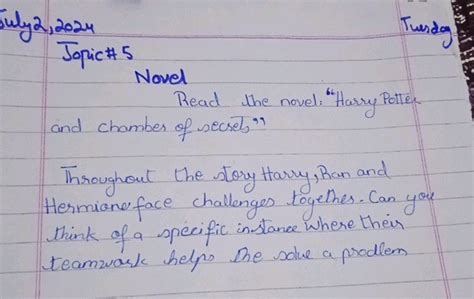 July 2, 2024 Tuesday
Topic # 5
Novel
Read the novel: "Harry Potter
and chamber of secret,"
Throughout the story Harry, Ron and
Hermione face challenges together. Can you
think of a specific instance where their
teamwork helps the solve a problem